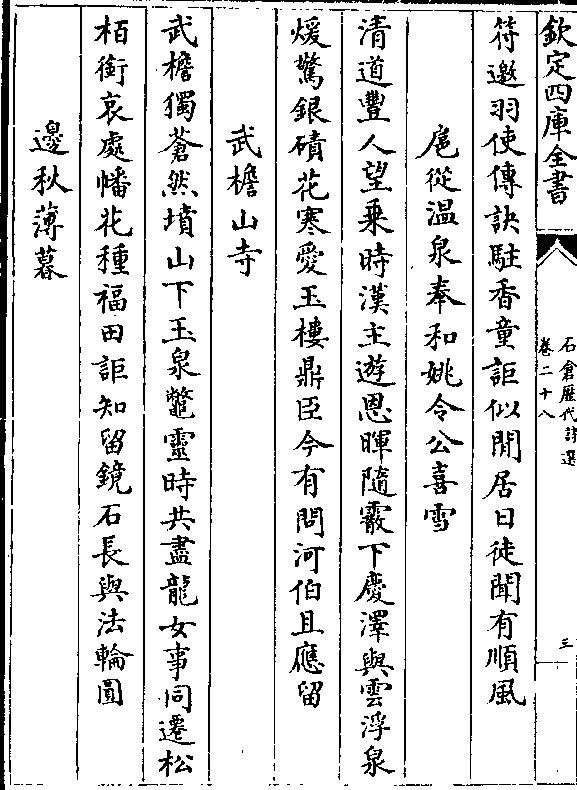 欽定四庫全書
石倉歷代詩選
卷二十八
三
符邀羽使傳訣駐香童詎似閒居日徒聞有順風
扈從温泉奉和姚令公喜雪
清道豐人望乗時漢主遊恩暉隨霰下慶澤與雲浮泉
煖驚銀磧花寒愛玉樓鼎臣今有問河伯且應留
武檐山寺
武檐獨蒼然墳山下玉泉鼈靈時共盡龍女事同遷松
栢銜哀處幡花種福田詎知留鏡石長與法輪圓
邊秋薄暮